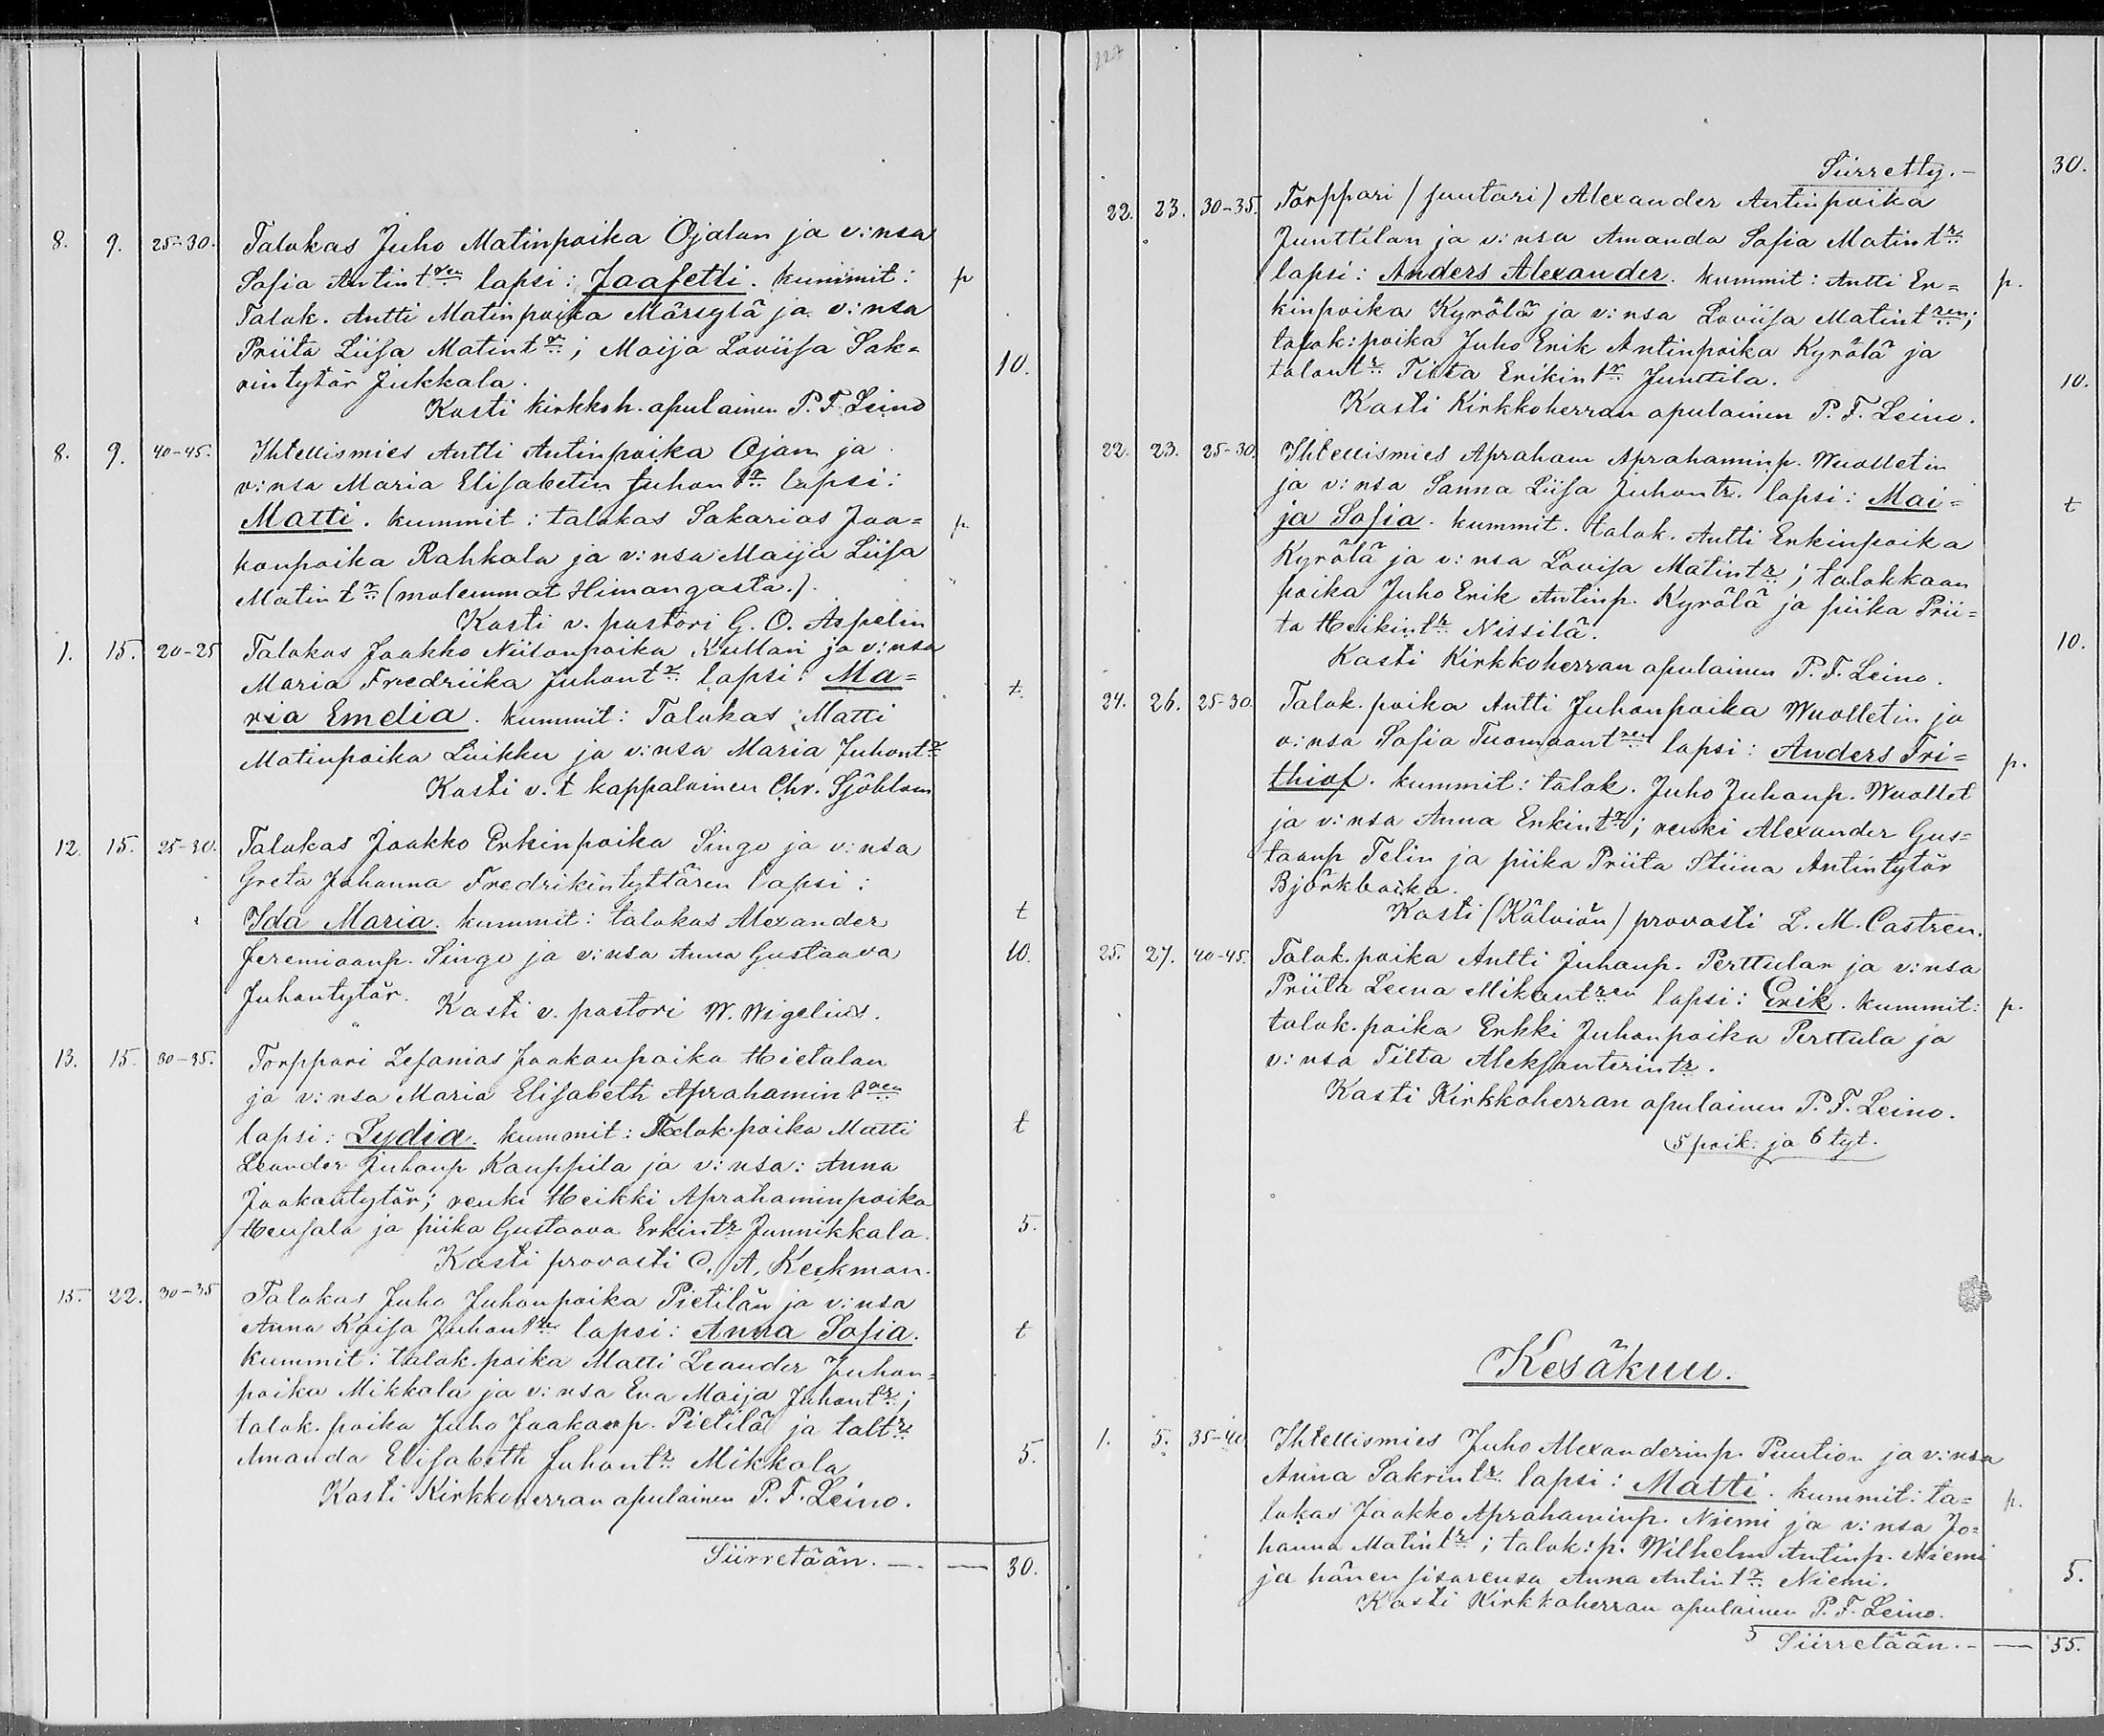 8. 9. 25-30. Talokas Juho Matinpoika Ojalan ja v:nsa
Sofia Antint:ren lapsi: Jaafetti. kummit: p
Talok. Antti Matinpoika Märsylä ja v:nsa
Priita Liisa Matint:r; Maija Loviisa Sak=
rintytär Jukkala. 10.
Kasti kirkkoh. apulainen P. F. Leino
8. 9. 40-45. Ihtellismies Antti Antinpoika Ojan ja
v:nsa Maria Elisabetin Juhont:r lapsi:
Matti. kummit: talokas Sakarias Jaa= p
konpoika Rahkola ja v:nsa Maija Liisa
Matint:r (molemmat Himangasta.).
Kasti v. pastori G. O. Aspelin
1. 15. 20-25 Talokas Jaakko Niilonpoika Kullan ja v:nsa
Maria Fredriika Juhont:r lapsi: Ma= t
ria Emelia. kummit: Talokas Matti
Matinpoika Luikku ja v:nsa Maria Juhont:r
Kasti v. t kappalainen Chr. Sjöblom
12. 15. 25-30. Talokas Jaakko Erkinpoika Singo ja v:nsa
Greta Johanna Fredrikintyttären lapsi:
Ida Maria. kummit: talokas Alexander t
Jeremiaanp. Singo ja v:nsa Anna Gustaava 10.
Juhontytär. Kasti v. pastori W. Wigelius.
13. 15. 30-35. Torppari Zefanias Jaakonpoika Hietalan
ja v:nsa Maria Elisabeth Aprahamint:ren
lapsi: Lydia. kummit: Talok. poika Matti t
Leander Juhonp Kauppila ja v:nsa: Anna
Jaakontytär; renki Heikki Aprahaminpoika
ja piika Gustaava Erkint:r Junnikkala. 5.
Kasti provasti C. A. Keckman.
15. 22. 30-35 Talokas Juho Juhonpoika Pietilän ja v:nsa
Anna Kaisa Juhont:r lapsi: Anna Sofia. t
kummit: talok. poika Matti Leander Juhon=
poika Mikkola ja v:nsa Eva Maija Juhont:r;
talok. poika Juho Jaakonp. Pietilä ja talt:r
Amanda Elisabeth Juhont:r Mikkola 5.
Kasti Kirkkoherran apulainen P. F. Leino.
Siirretään. — — 30.
227
Siirretty. - 30.
22. 23. 30-35. Torppari (suutari) Alexander Antinpoika
Junttilan ja v:nsa Amanda Sofia Matint:r
lapsi: Anders Alexander. kummit: Antti Er= p.
kinpoika Kyrölä ja v:nsa Loviisa Matint:ren;
talok: poika Juho Erik Antinpoika Kyrölä ja
talont:r Tilta Erikint:r Junttila. 10.
Kasti Kirkkoherran apulainen P. F. Leino.
22. 23. 25-30. Ihtellismies Apraham Aprahaminp. Wuolletin
ja v:nsa Sanna Liisa Juhontr. lapsi: Mai= t
ja Sofia. kummit. talok. Antti Erkinpoika
Kyrölä ja v:nsa Lovisa Matint:r; talokkaan
poika Juho Erik Antinp. Kyrölä ja piika Prii=
ta Heikint:r Nissilä. 10.
Kasti Kirkkoherran apulainen P. F. Leino.
24. 26. 25-30. Talok. poika Antti Juhonpoika Wuolletin ja
v:nsa Sofia Tuomaant:ren lapsi: Anders Fri= p.
thiof. kummit: talok. Juho Juhonp. Wuollet
ja v:nsa Anna Erkint:r; renki Alexander Gus=
taanp Telin ja piika Priita Stiina Antintytär
Björkbacka.
Kasti (Kälviän) provasti L. M. Castren.
25. 27. 40-45. Talok. poika Antti Juhonp. Perttulan ja v:nsa
Priita Leena Mikont:ren lapsi: Erik. kummit: p.
talok. poika Erkki Juhonpoika Perttula ja
v:nsa Tilta Aleksanterint:r.
Kasti Kirkkoherran apulainen P. F. Leino.
5 poik: ja 6 tyt.
Kesäkuu.
1. 5. 35-40. Ihtellismies Juho Alexanderinp. Puution ja v:nsa
Anna Sakrint:r lapsi: Matti. kummit: ta= p.
lokas Jaakko Aprahaminp. Niemi ja v:nsa Jo=
hanna Matint:r; talok: p. Wilhelm Antinp. Niemi
ja hänen sisarensa Anna Antint:r Niemi. 5.
Kasti Kirkkoherran apulainen P. F. Leino.
Siirretään. - — 55.